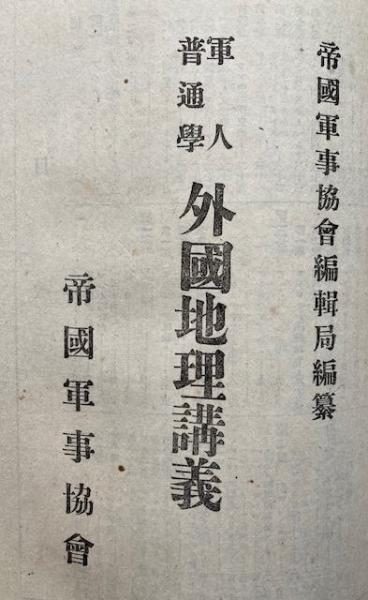 帝國軍事協會編輯局編纂
軍人
普通學
外國地理講義
帝國軍事協會